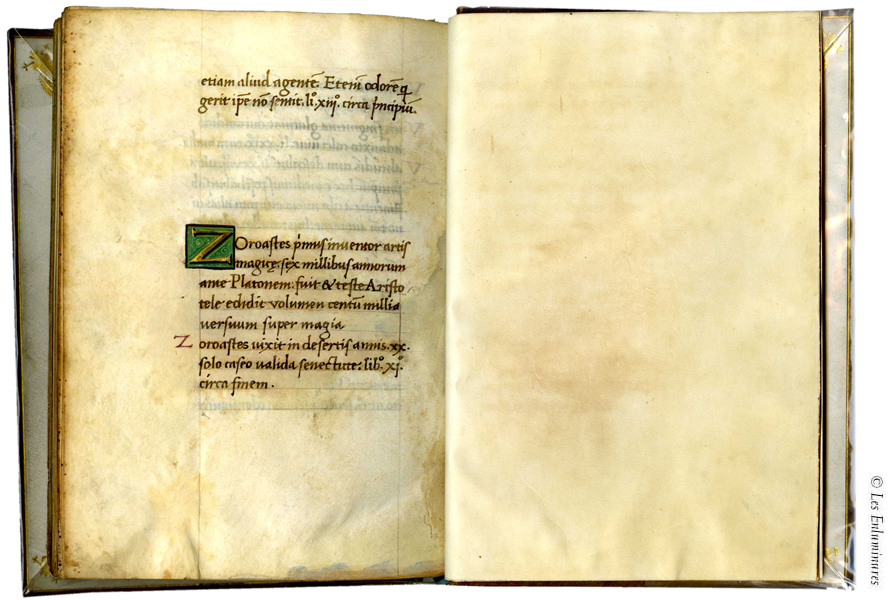 etiam aliud agentē. Etenī odorē q̄
gerit ip̄e nō sentit. li°. xiij°. circa p̄ncipiū.
Zoroastes p̄mus inventor artis
magicę: sex millibus annorum
ante Platonem: fuit & teste Aristo
tele edidit volumen centū millia
versuum super magia
Zoroastes vixit in desertis annis .xx.
solo caseo valida senectute: lib°. xj°.
circa finem.
© Les Enluminures